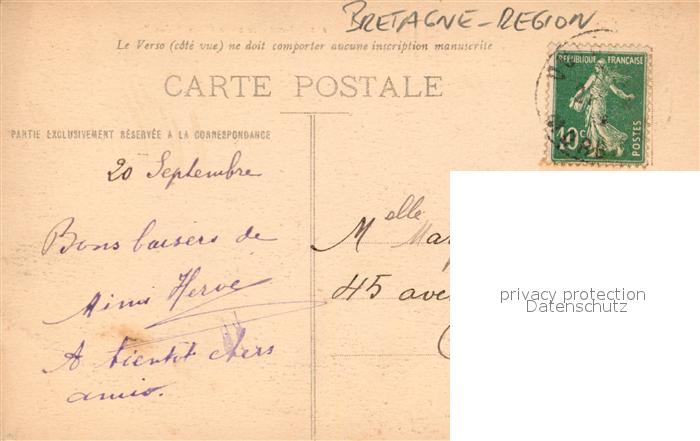 BRETAGNE-REGION
Le Verso (côté vue) ne doit comporter aucune inscription manuscrite
CARTE POSTALE
REPUBLIQUE FRANÇAISE
10c
POSTES
PARTIE EXCLUSIVEMENT RÉSERVÉE A LA CORRESPONDANCE
20 Septembre
Bons baisers de
Mimi Hervé
A bientôt chers
amis.
Melle Mar
45 ave
privacy protection
Datenschutz